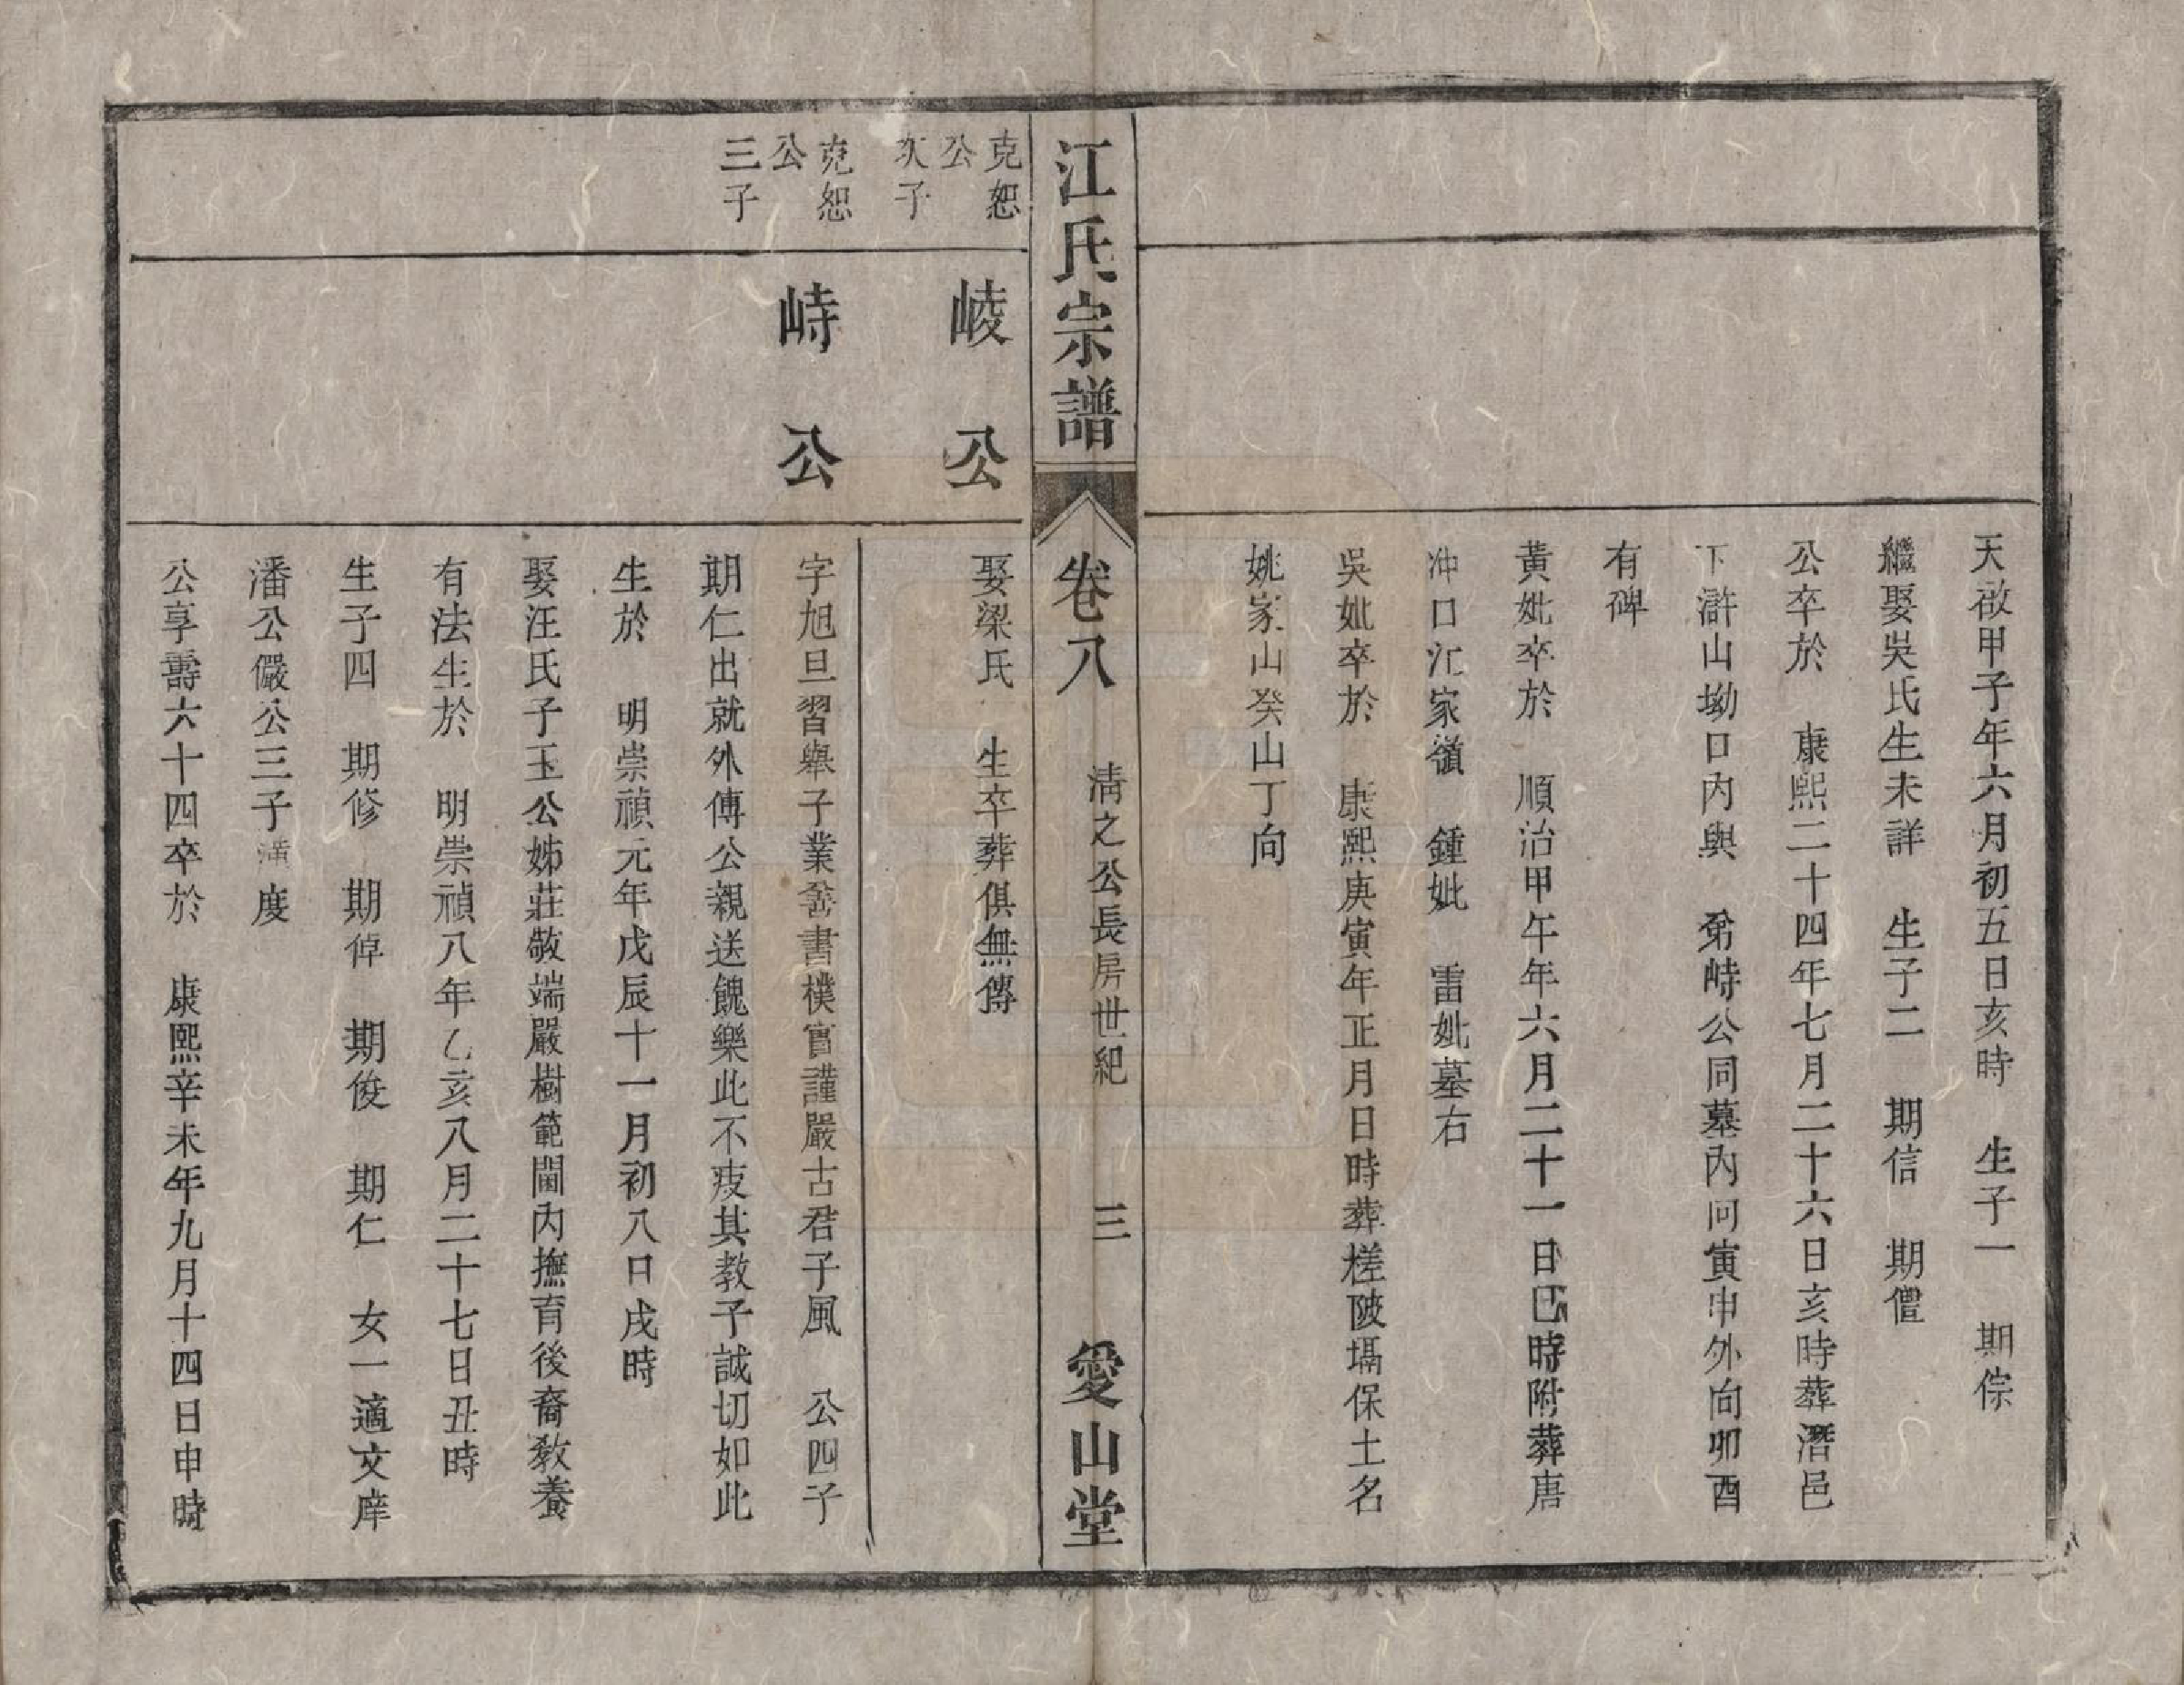 天啟甲子年六月初五日亥時　生子一　期倧
繼娶吳氏生未詳　生子二　期信　期僼
公卒於　康熙二十四年七月二十六日亥時葬潛邑
下滸山坳口內與　弟峙公同墓內向寅申外向卯酉
有碑
黃妣卒於　順治甲午年六月二十一日巳時附葬唐
冲口江家嶺　鍾妣　雷妣墓右
吳妣卒於　康熙庚寅年正月日時葬槎陂塥保土名
姚家山癸山丁向
江氏宗譜　卷八　清之公長房世紀　三　愛山堂
克恕公次子
崚公
娶梁氏　生卒葬俱無傳
克恕公三子
峙公
字旭旦習舉子業善書樸實謹嚴古君子風　公四子
期仁出就外傅公親送餽樂此不疲其教子誠切如此
生於　明崇禎元年戊辰十一月初八日戌時
娶汪氏子玉公姊莊敬端嚴樹範閫內撫育後裔教養
有法生於　明崇禎八年乙亥八月二十七日丑時
生子四　期修　期倬　期俊　期仁　女一適文庠
潘公儼公三子潢度
公享壽六十四卒於　康熙辛未年九月十四日申時